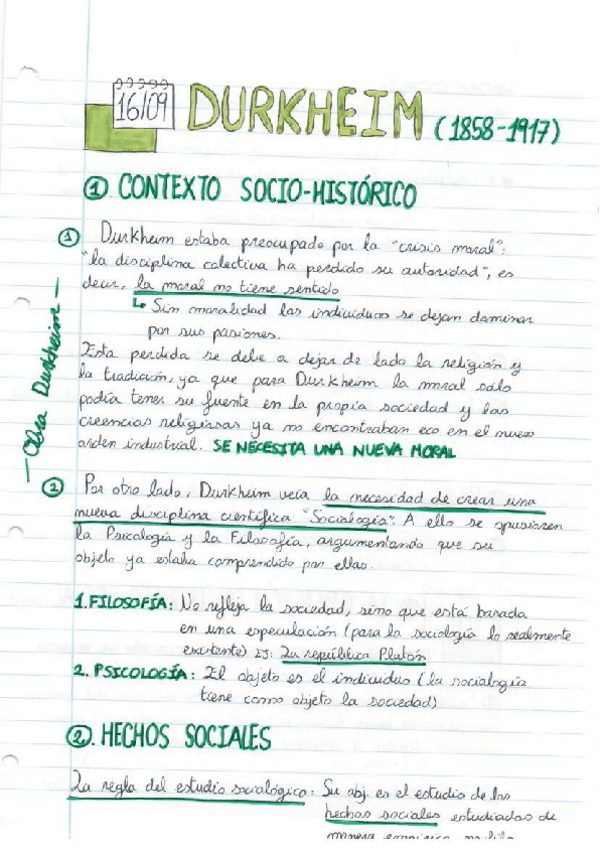 16/09 DURKHEIM (1858-1917)
① CONTEXTO SOCIO-HISTÓRICO
① Durkheim estaba preocupado por la "crisis moral":
"la disciplina colectiva ha perdido su autoridad", es
decir, la moral no tiene sentido
↳ Sin moralidad los individuos se dejan dominar
por sus pasiones.
Esta perdida se debe a dejar de lado la religión y
la tradición, ya que para Durkheim la moral solo
podía tener su fuente en la propia sociedad y las
creencias religiosas ya no encontraban eco en el nuevo
orden industrial. SE NECESITA UNA NUEVA MORAL
— Obra Durkheim —
② Por otro lado, Durkheim veía la necesidad de crear una
nueva disciplina científica "Sociología". A ello se opusieron
la Psicología y la Filosofía, argumentando que su
objeto ya estaba comprendido por ellas.
1. FILOSOFÍA: No refleja la sociedad, sino que está basada
en una especulación (para la sociología lo realmente
existente) EJ: La república Platón
2. PSICOLOGÍA: El objeto es el individuo (la sociología
tiene como objeto la sociedad)
②. HECHOS SOCIALES
La regla del estudio sociológico: Su obj. es el estudio de los
hechos sociales estudiados de
manera